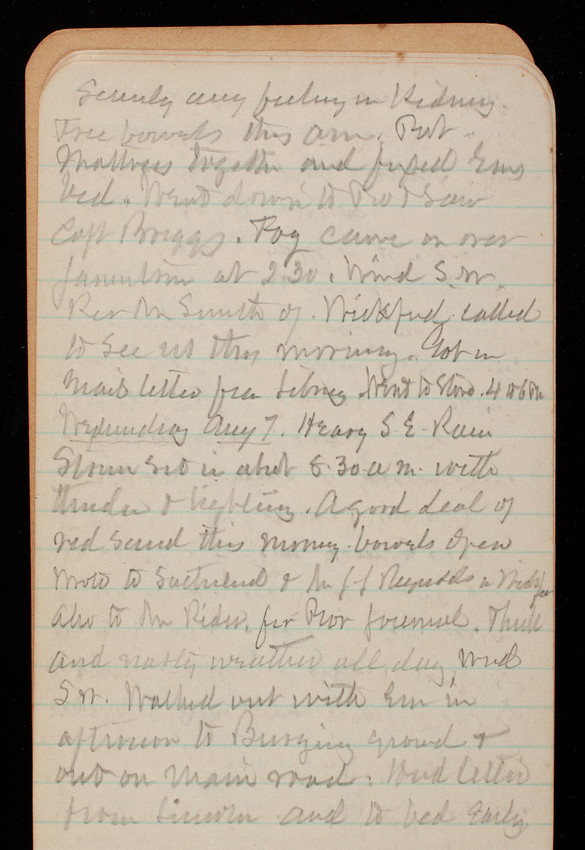 Scarcely any feeling in Kidney.
Free bowels this am. Put
Mattress together and fixed Ems
bed. Went down to Pro & Saw
Capt Briggs. Fog came on over
Jamestown at 2.30. Wind S.W.
Rev Mr Smith of Wickford called
to See us this morning. Got in
Mail letter from Sibney Went to Store. 4
Wednesday Aug 7. Heavy S.E. Rain
Storm set in about 8.30 a m. with
thunder & lightning. A good deal of
red Sand this morning. bowels open
Wrote to Sutherland & Mr Reynolds
also to Mr Rider, for Prov Journal. Thick
and nasty weather all day Wind
SW. Walked out with Em in
afternoon to Burying ground &
out on main road. Had letter
from Lincoln and to bed Early